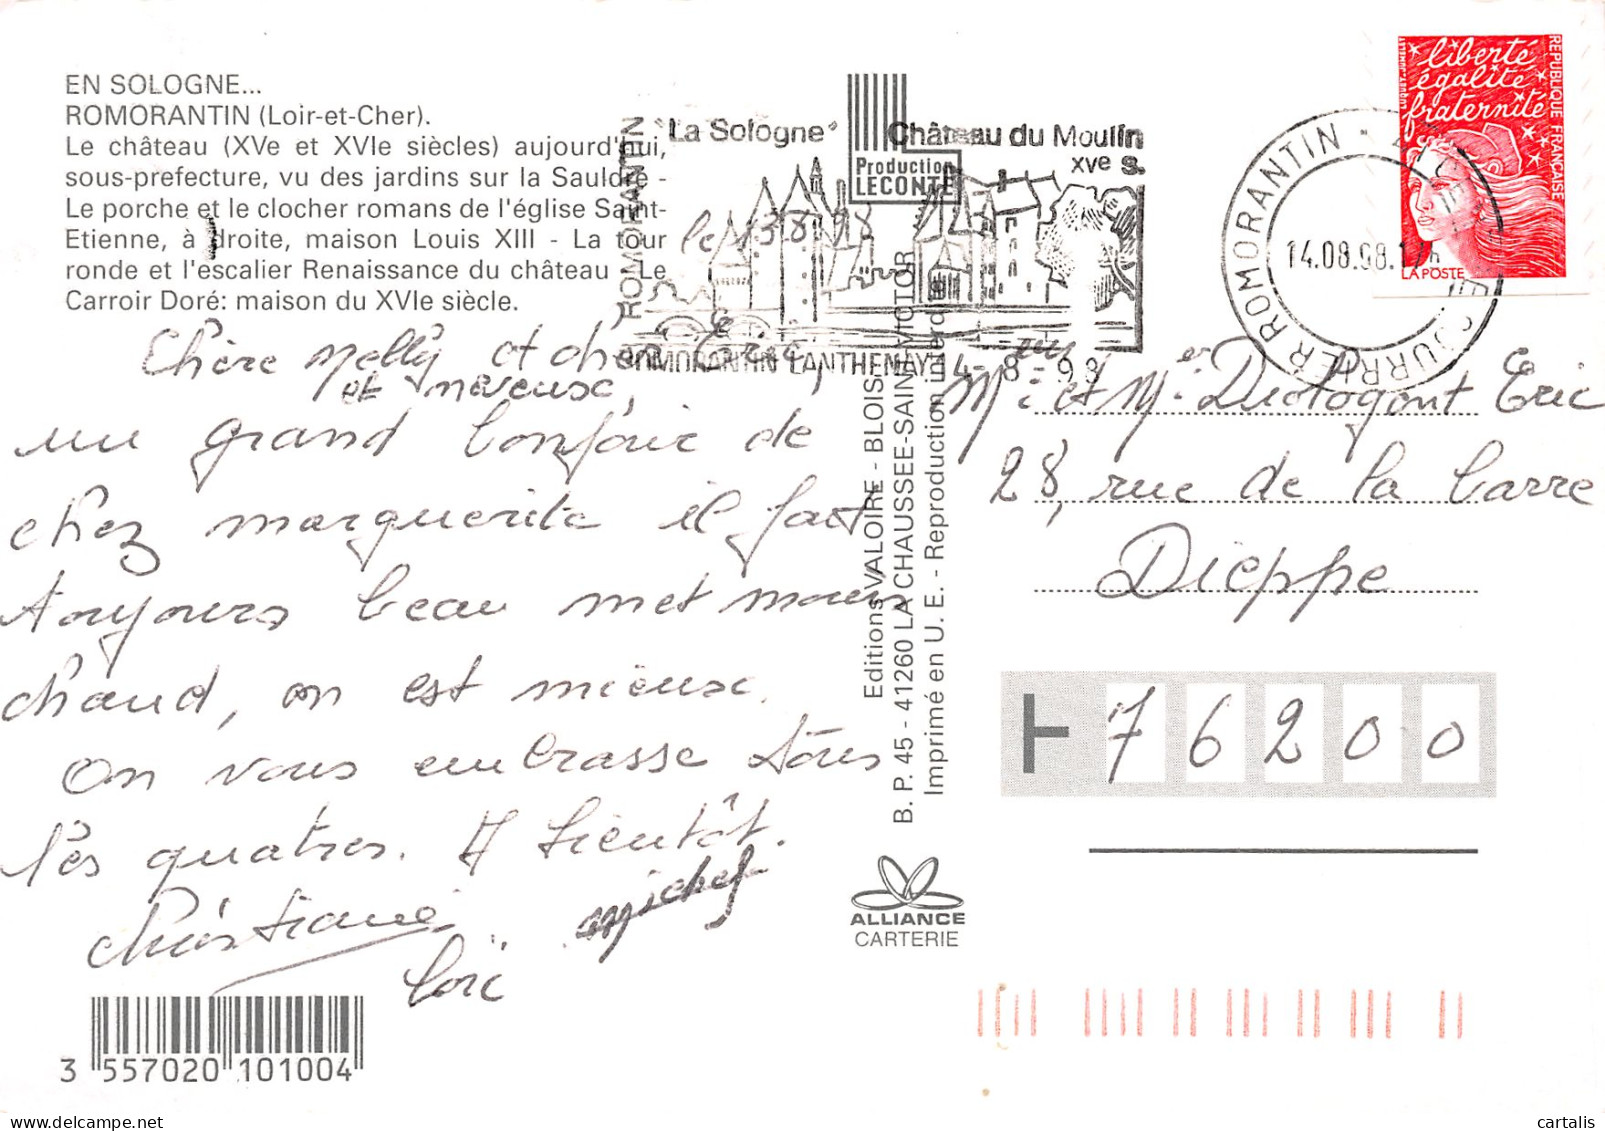 EN SOLOGNE...
ROMORANTIN (Loir-et-Cher).
Le château (XVe et XVIe siècles) aujourd'hui,
sous-prefecture, vu des jardins sur la Sauldre -
Le porche et le clocher romans de l'église Saint-
Etienne, à droite, maison Louis XIII - La tour
ronde et l'escalier Renaissance du château - Le
Carroir Doré: maison du XVIe siècle.
ROMORANTIN
"La Sologne" Château du Moulin
XVe S.
ROMORANTIN LANTHENAY 14-8-98
Production
LECONTE
le 13 8 98
Chère Melly et cher
et neveux,
un grand bonjour de
chez marguerite il fait
toujours beau met moins
chaud, on est mieux.
On vous embrasse tous
les quatres. A bientôt.
Christiane
michel
Loïc
3 557020 101004
Editions VALOIRE - BLOIS
B. P. 45 - 41260 LA CHAUSSEE-SAINT-VICTOR
Imprimé en U. E. - Reproduction interdite
ALLIANCE
CARTERIE
liberté
égalité
fraternité
REPUBLIQUE FRANÇAISE
LA POSTE
ROMORANTIN
14.08.98.17h
COURRIER ROMORANTIN
et Eric
28, rue de la Barre
Dieppe
76200
cartalis